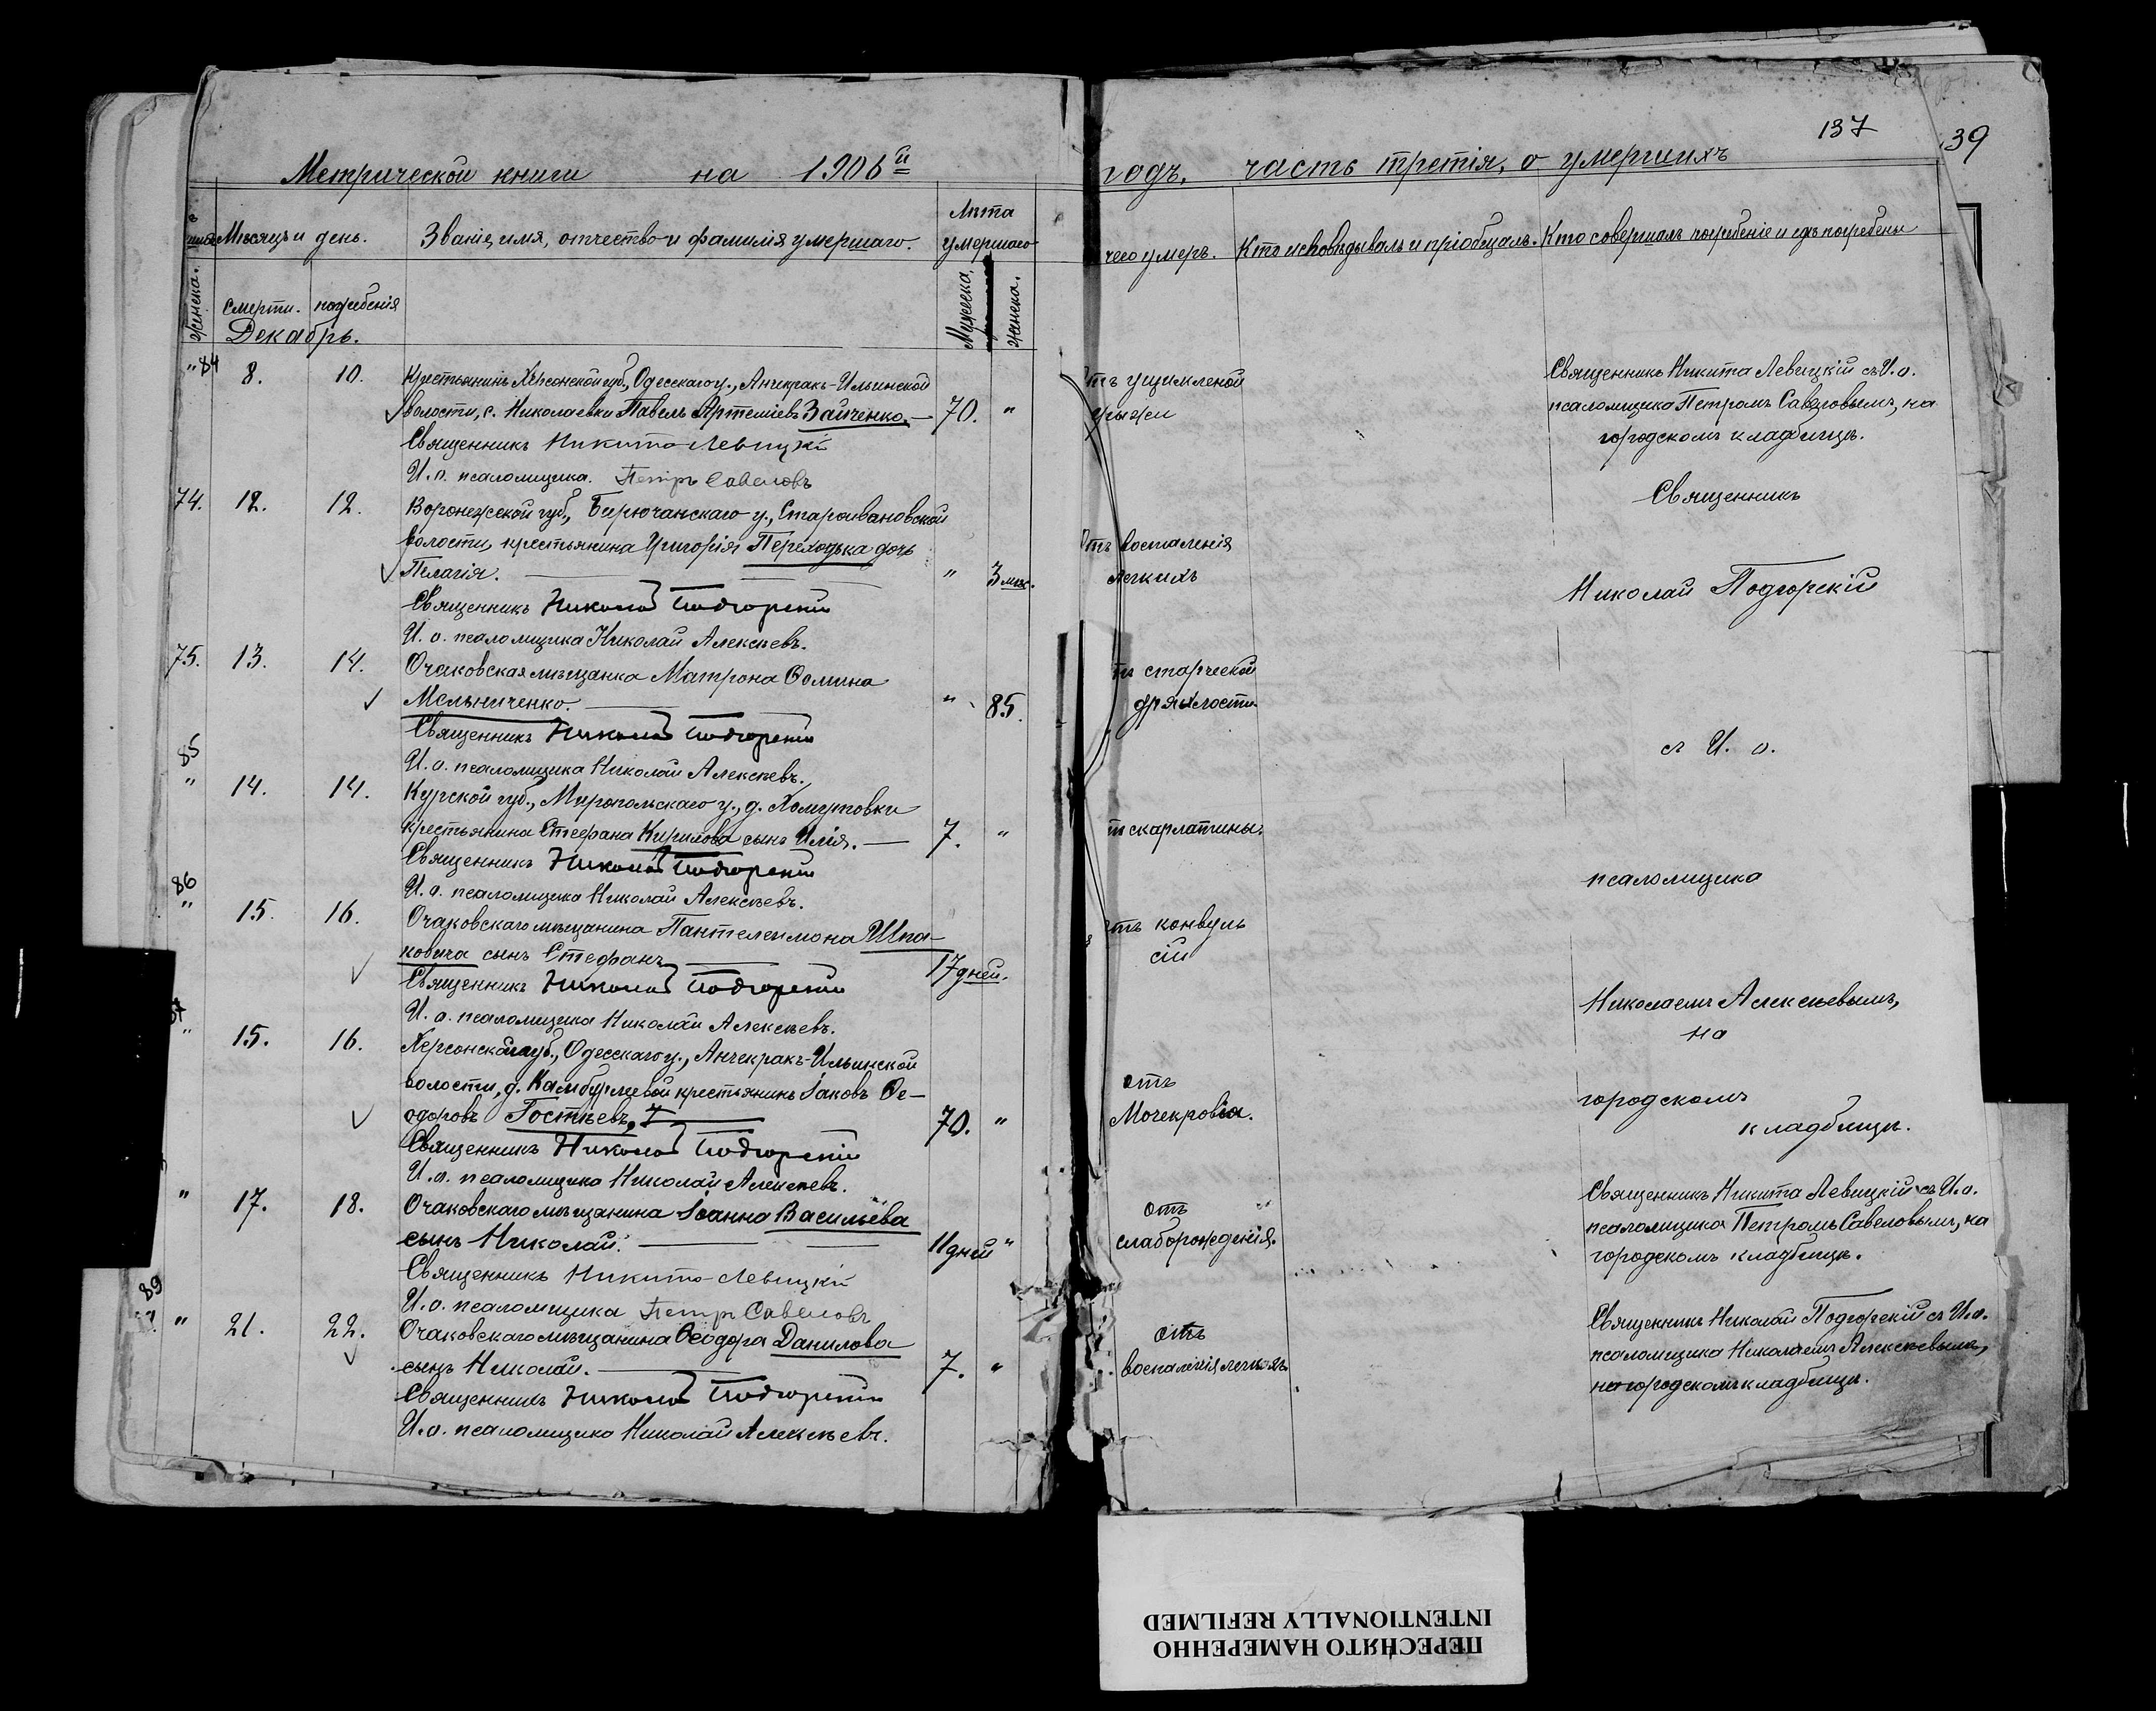 137
39
Метрической книги на 1906й годъ, часть третія, о умершихъ
Мѣсяцъ и день.
Званіе, имя, отчество и фамилія умершаго.
Лѣта умершаго
чего умеръ.
Кто исповѣдывалъ и пріобщалъ.
Кто совершалъ погребеніе и гдѣ погребены
женска.
смерти.
погребенія
Мужеска.
женска.
Декабрь.
" 84 8. 10. Крестьянинъ Херсонской губ., Одесскаго у., Анчекракъ-Ильинской
волости, с. Николаевки Павелъ Артеміевъ Зайченко. — 70. "
Священникъ Никита Левицкій
И. о. псаломщика. Петръ Савеловъ
отъ ущимленой
грыжи
Священникъ Никита Левицкій съ И. о.
псаломщика Петромъ Савеловымъ, на
городскомъ кладбищѣ.
74. 12. 12. Воронежской губ., Бирючанскаго у., Староивановской
волости, крестьянина Григорія Переходька дочь
Пелагія. " 3 мѣс.
Священникъ Николай Подгорскій
И. о. псаломщика Николай Алексѣевъ.
отъ воспаленія
легкихъ
Священникъ
Николай Подгорскій
75. 13. 14. Очаковская мѣщанка Матрона Ѳомина
Мельниченко. " 85.
Священникъ Николай Подгорскій
И. о. псаломщика Николай Алексѣевъ.
тъ старческой
дряхлости
съ И. о.
85 " 14. 14. Курской губ., Миропольскаго у., д. Хомутовки
крестьянина Стефана Кирилова сынъ Илія. — 7. "
Священникъ Николай Подгорскій
И. о. псаломщика Николай Алексѣевъ.
тъ скарлатины.
псаломщика
86 " 15. 16. Очаковскаго мѣщанина Пантелеимона Шпа-
ковича сынъ Стефанъ 17 дней.
Священникъ Николай Подгорскій
И. о. псаломщика Николай Алексѣевъ.
отъ конвуль
сій
Николаемъ Алексѣевымъ,
на
" 15. 16. Херсонской губ., Одесскаго у., Анчекракъ-Ильинской
волости, д. Камбурлеевой крестьянинъ Іаковъ Ѳе-
одоровъ Гостѣевъ, 70. "
Священникъ Николай Подгорскій
И. о. псаломщика Николай Алексѣевъ.
отъ
Мочекровія.
городскомъ
кладбищѣ.
" 17. 18. Очаковскаго мѣщанина Іоанна Васильева
сынъ Николай. 11 дней "
Священникъ Никита Левицкій
И. о. псаломщика Петръ Савеловъ
отъ
слаборожденія.
Священникъ Никита Левицкій съ И. о.
псаломщика Петромъ Савеловымъ, на
городскомъ кладбищѣ.
89 " 21. 22. Очаковскаго мѣщанина Ѳеодора Данилова
сынъ Николай. 7. "
Священникъ Николай Подгорскій
И. о. псаломщика Николай Алексѣевъ.
отъ
воспаленія легкихъ
Священникъ Николай Подгорскій съ И. о.
псаломщика Николаемъ Алексѣевымъ,
на городскомъ кладбищѣ.
ПЕРЕСНЯТО НАМЕРЕННО
INTENTIONALLY REFILMED